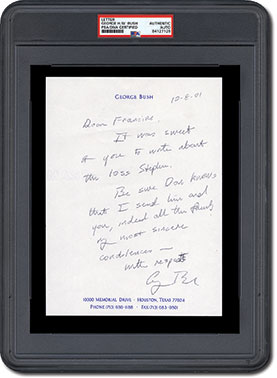 LETTER
GEORGE H.W. BUSH
PSA/DNA CERTIFIED
AUTHENTIC
AUTO
84127125
PSA
GEORGE BUSH
10-8-01
Dear Francine,
It was sweet
of you to write about
the loss Stephen.
Be sure Don knows
that I send him and
you, indeed all the family
my most sincere
condolences —
with respect
G Bush
10000 MEMORIAL DRIVE · HOUSTON, TEXAS 77024